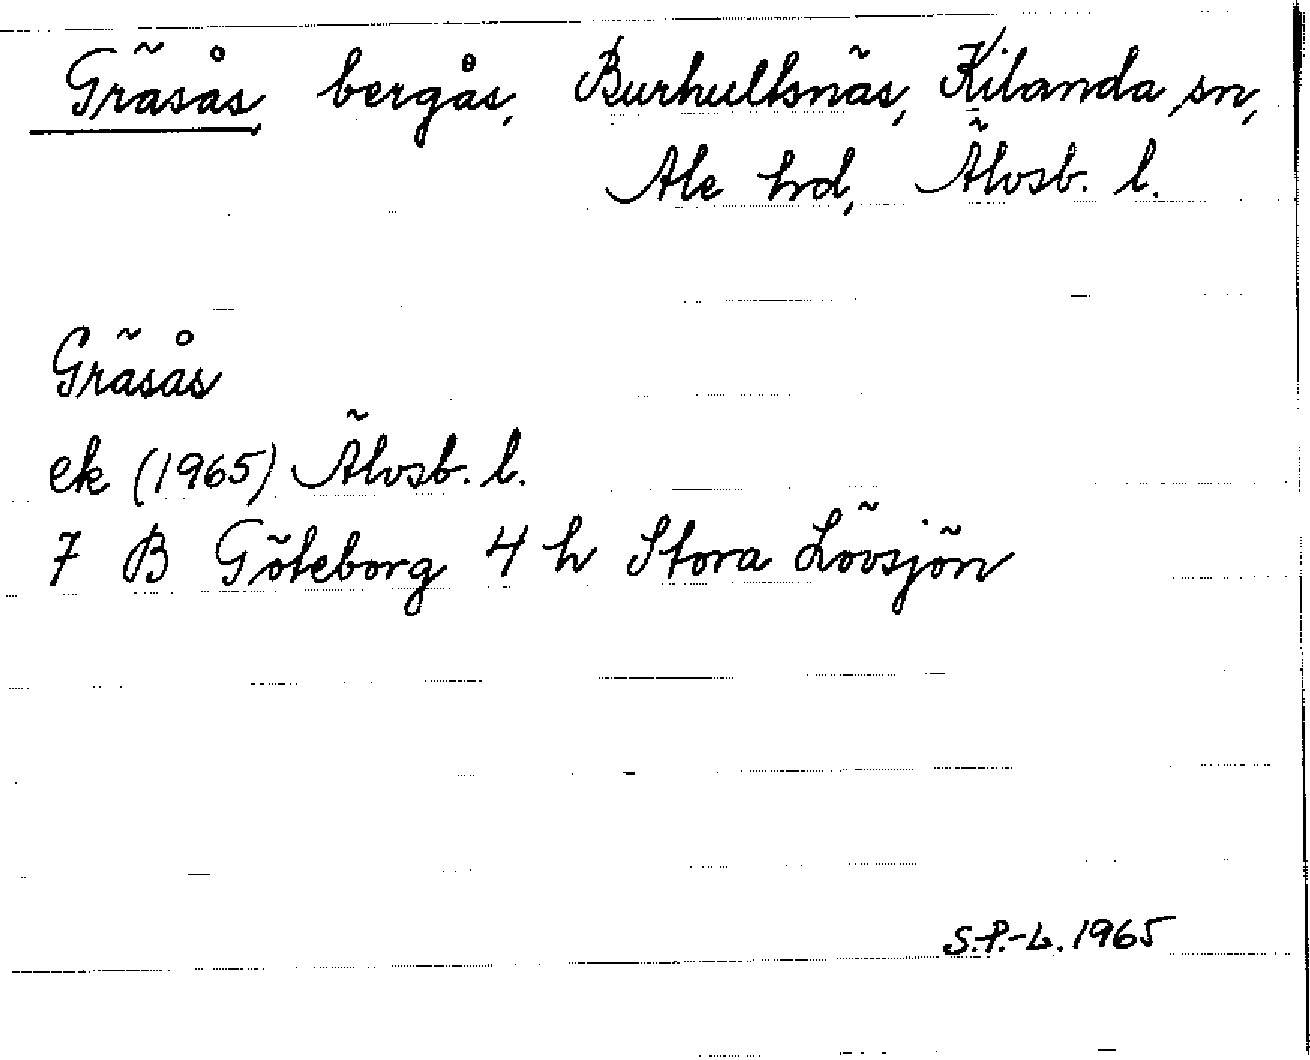 Gräsås, bergås, Burhultsnäs, Kilanda sn,
Ale hrd, Älvsb. l.
Gräsås
ek (1965) Älvsb. l.
7 B Göteborg 4 h Stora Lövsjön
S.P.-L. 1965